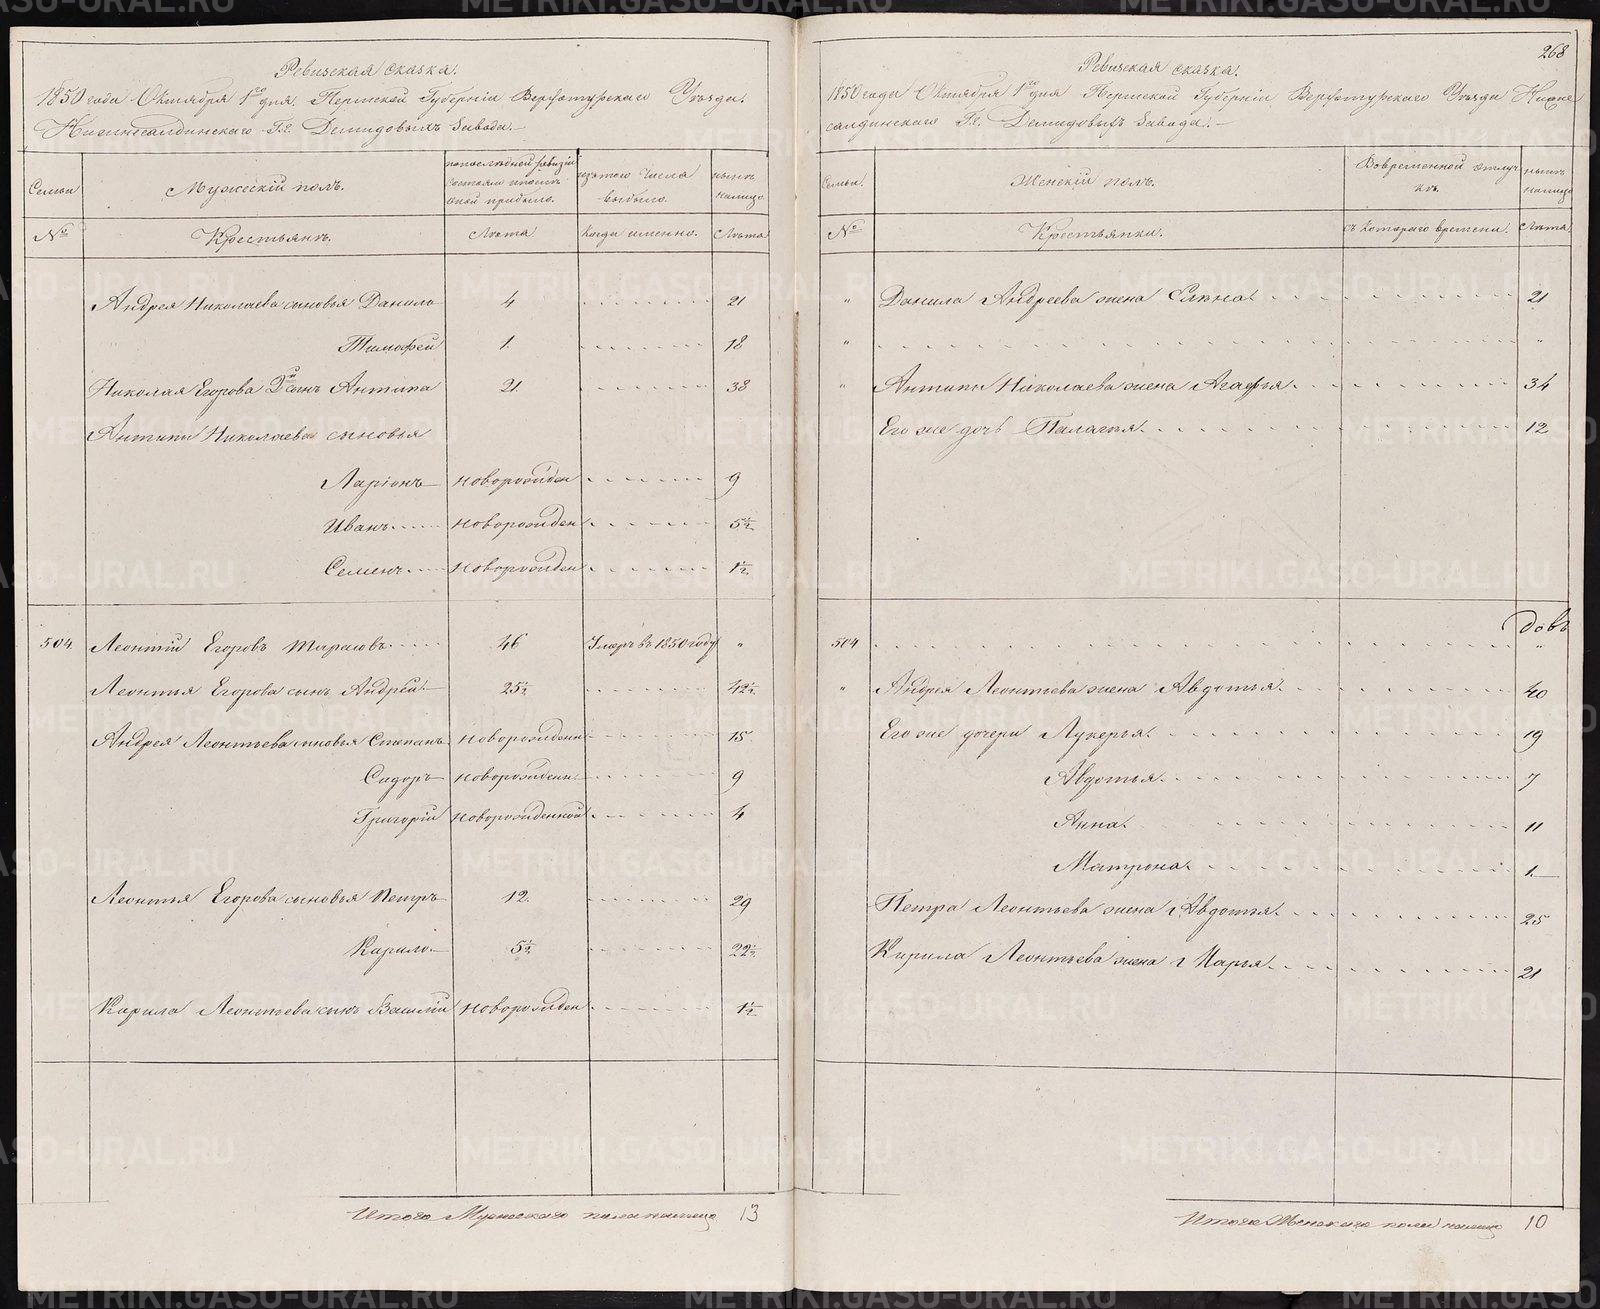 Ревизская сказка.
1850 года Октября 1го дня. Пермской Губерніи Верхотурскаго Уѣзда.
Нижнесалдинскаго Г.г. Демидовыхъ Завода.
Семьи
Мужескій полъ.
по последней ревизіи состояло и после оной прибыло.
изъ того числа выбыло.
нынѣ на лицо
№
Крестьянъ.
Лѣта
Когда именно.
Лѣта
Андрея Николаева сыновья Данило 4 21
Тимофей 1. 18
Николая Егорова 2й сынъ Антипа 21. 38
Антипы Николаева сыновья
Ларіонъ новорожден 9
Иванъ новорожден 5½
Семенъ новорожден 1½
504. Леонтій Егоровъ Тарасовъ 46 Умеръ въ 1850 году "
Леонтья Егорова сынъ Андрей 25½ 42½
Андрея Леонтьева сыновья Степанъ новорожденн 15
Сидоръ новорожденн 9
Григорій новорожденной 4
Леонтья Егорова сыновья Петръ 12. 29
Кирило 5½ 22½
Кирила Леонтьева сынъ Василій новорожден 1½
Итого Мужескаго пола на лицо 13
268
Ревизская сказка.
1850 года Октября 1го дня Пермской Губерніи Верхотурскаго Уѣзда Нижне
салдинскаго Г.г. Демидовыхъ Завода.
Семьи.
Женскій полъ.
Во временной отлучкѣ.
нынѣ на лицо
№
Крестьянки.
съ котораго времени.
Лѣта
" Данила Андреева жена Елена 21
" "
" Антипы Николаева жена Агафья 34
Его же дочь Палагья 12
504 "
" Андрея Леонтьева жена Авдотья 40
Его же дочери Лукерья 19
Авдотья 7
Анна 11
Матрона 1.
Петра Леонтьева жена Авдотья 25
Кирила Леонтьева жена Марья 21
Итого Женскаго пола на лицо 10
METRIKI.GASO-URAL.RU